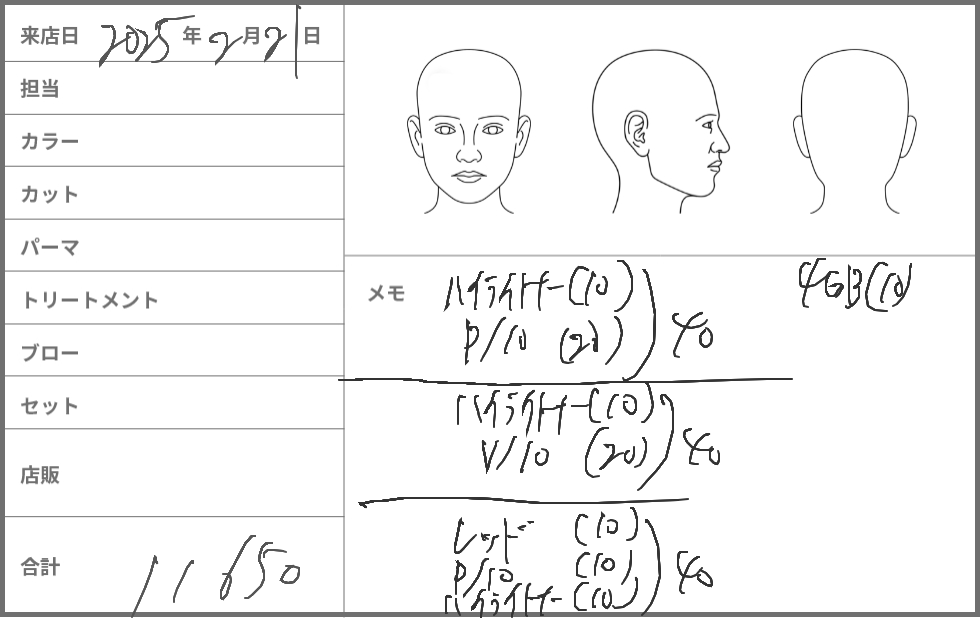 来店日 2025年2月21日
担当
カラー
カット
パーマ
トリートメント
ブロー
セット
店販
合計 11650
メモ
ハイライトナー(10)
P/10 (20)
40
4GB(10)
ハイライトナー(10)
V/10 (20)
40
レッド (10)
P/10 (10)
ハイライトナー(10)
40